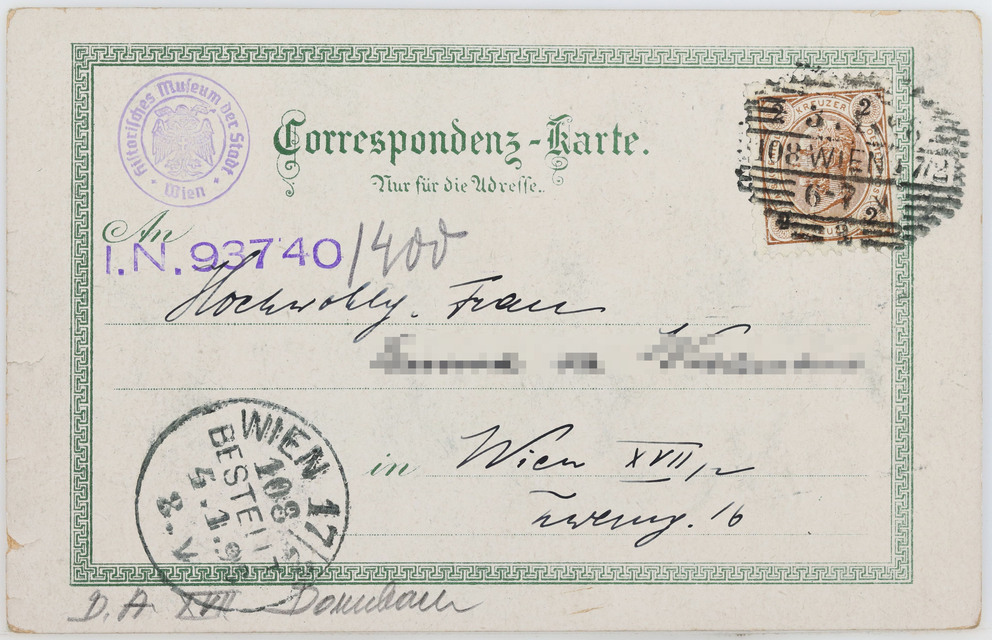 Historisches Museum der Stadt
Wien
Correspondenz-Karte.
Nur für die Adresse.
2 KREUZER 2
108 WIEN 17/2
6-7
2
An
I.N. 93740/400
Hochwohlg. Frau
in Wien XVII/2
16
WIEN 17/2
108
BESTELLT
5.1.98
8.-V
D. A. XVII Dornbach